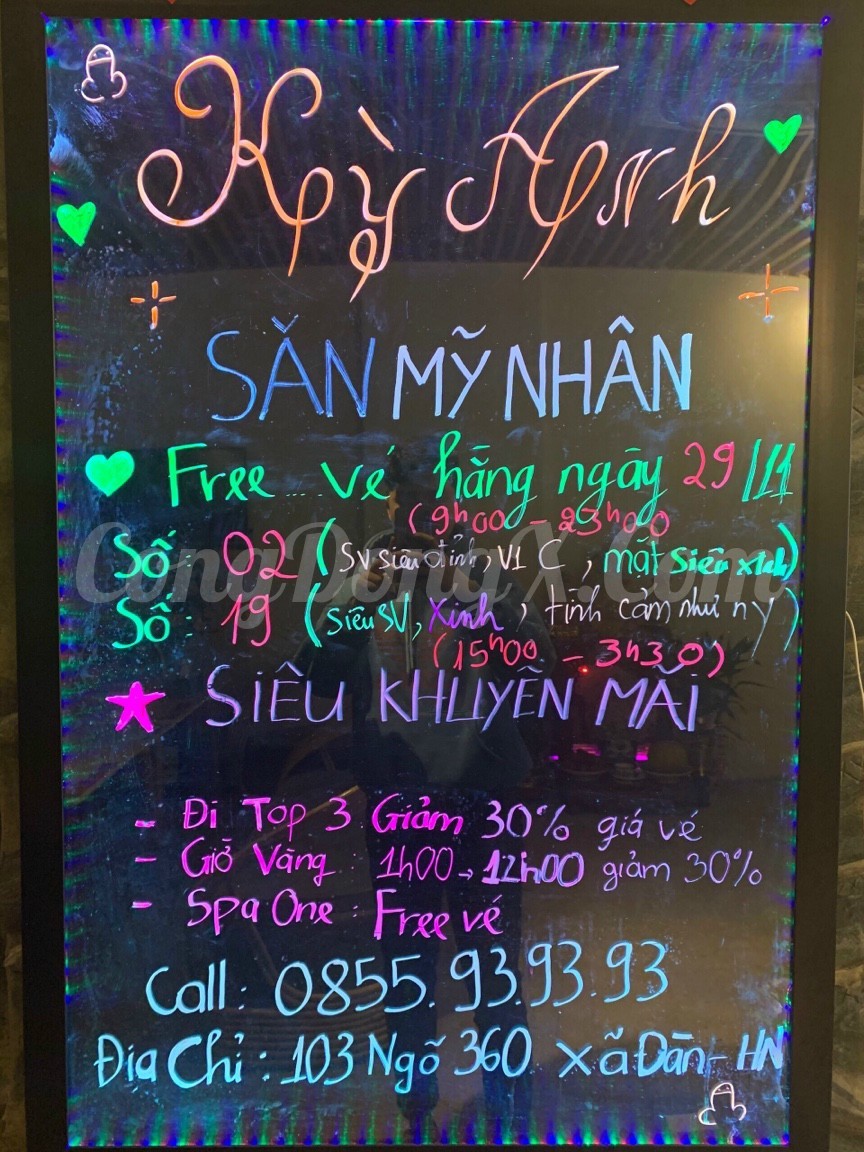 Kỳ Anh
SĂN MỸ NHÂN
Free vé hằng ngày 29/11
(9h00 - 23h00
Số: 02 (SV siêu đỉnh, V1 C, mặt siêu xinh)
Số: 19 (siêu SV, Xinh, tình cảm như ny)
(15h00 - 3h30)
SIÊU KHUYẾN MÃI
- Đi Top 3 Giảm 30% giá vé
- Giờ Vàng: 1h00 → 12h00 giảm 30%
- Spa One: Free vé
Call: 0855.93.93.93
Địa Chỉ: 103 Ngõ 360 Xã Đàn - HN
CongDongX.Com